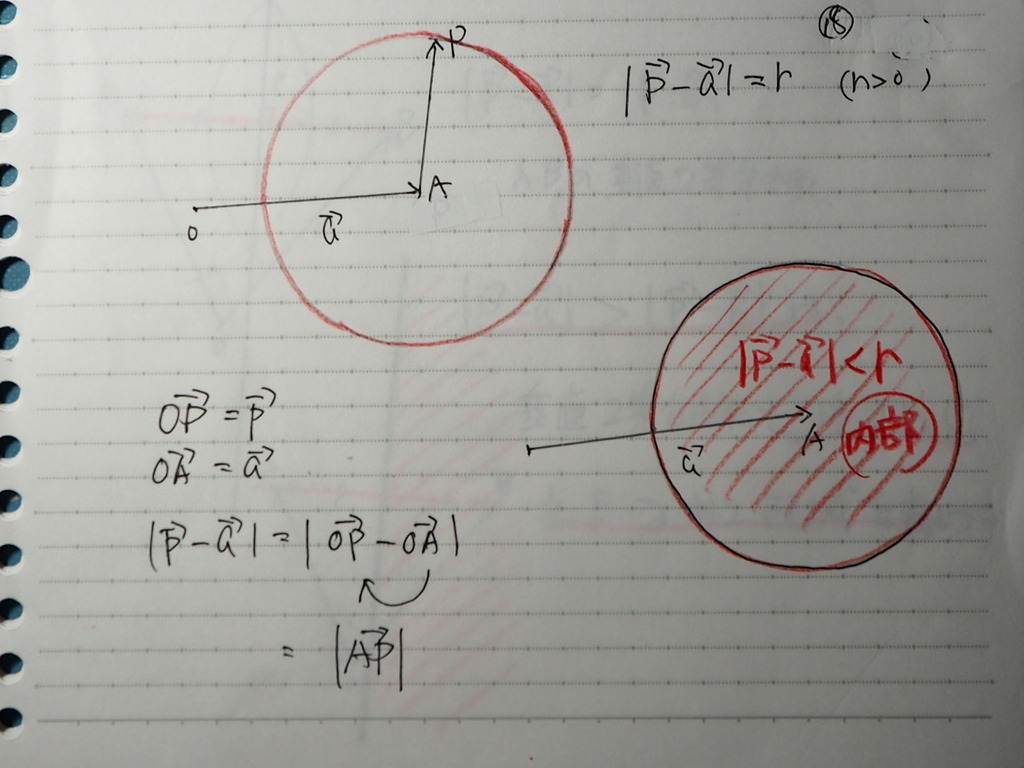 ⑱
P
|p⃗ − a⃗| = r (r>0)
A
O
a⃗
|p⃗ − a⃗| < r
OP⃗ = p⃗
A
内部
a⃗
OA⃗ = a⃗
|p⃗ − a⃗| = |OP⃗ − OA⃗|
= |AP⃗|